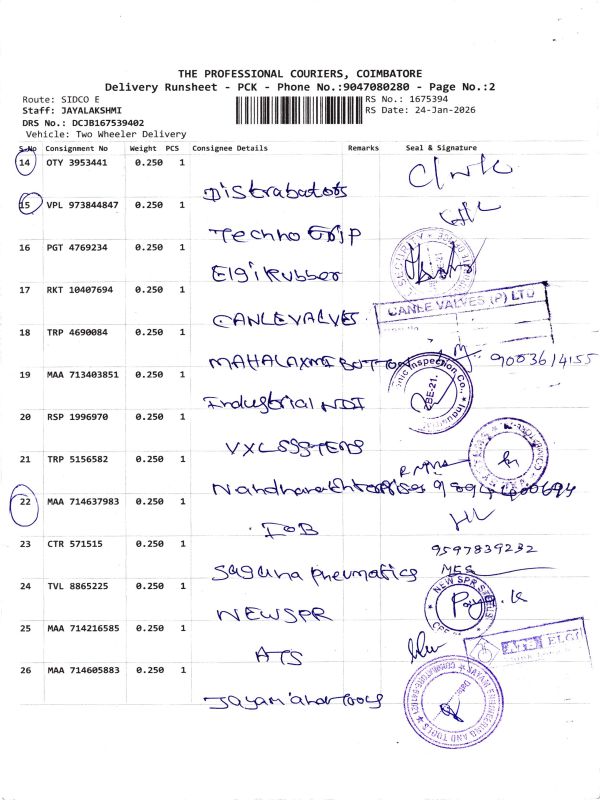 THE PROFESSIONAL COURIERS, COIMBATORE
Delivery Runsheet - PCK - Phone No.:9047080280 - Page No.:2
Route: SIDCO E
RS No.: 1675394
Staff: JAYALAKSHMI
RS Date: 24-Jan-2026
DRS No.: DCJB167539402
Vehicle: Two Wheeler Delivery
S.No Consignment No Weight PCS Consignee Details Remarks Seal & Signature
14 OTY 3953441 0.250 1
Distrabators
15 VPL 973844847 0.250 1
Techno
16 PGT 4769234 0.250 1
Elgi Rubber
SECURITY
17 RKT 10407694 0.250 1
CANLEVALVES
CANLE VALVES (P) LTD
18 TRP 4690084 0.250 1
MAHALAXMI BUTTON 9003614155
19 MAA 713403851 0.250 1
Industrial NDI
Inspection Co.,
20 RSP 1996970 0.250 1
VXL SYSTEMS
21 TRP 5156582 0.250 1
22 MAA 714637983 0.250 1
IOB
23 CTR 571515 0.250 1
9597839232
Saguna pneumatics
24 TVL 8865225 0.250 1
NEW SPR STEELS
NEWSPR
25 MAA 714216585 0.250 1
ATS
ELGI
26 MAA 714605883 0.250 1
SAYAM ENGINEERING AND TOOLS